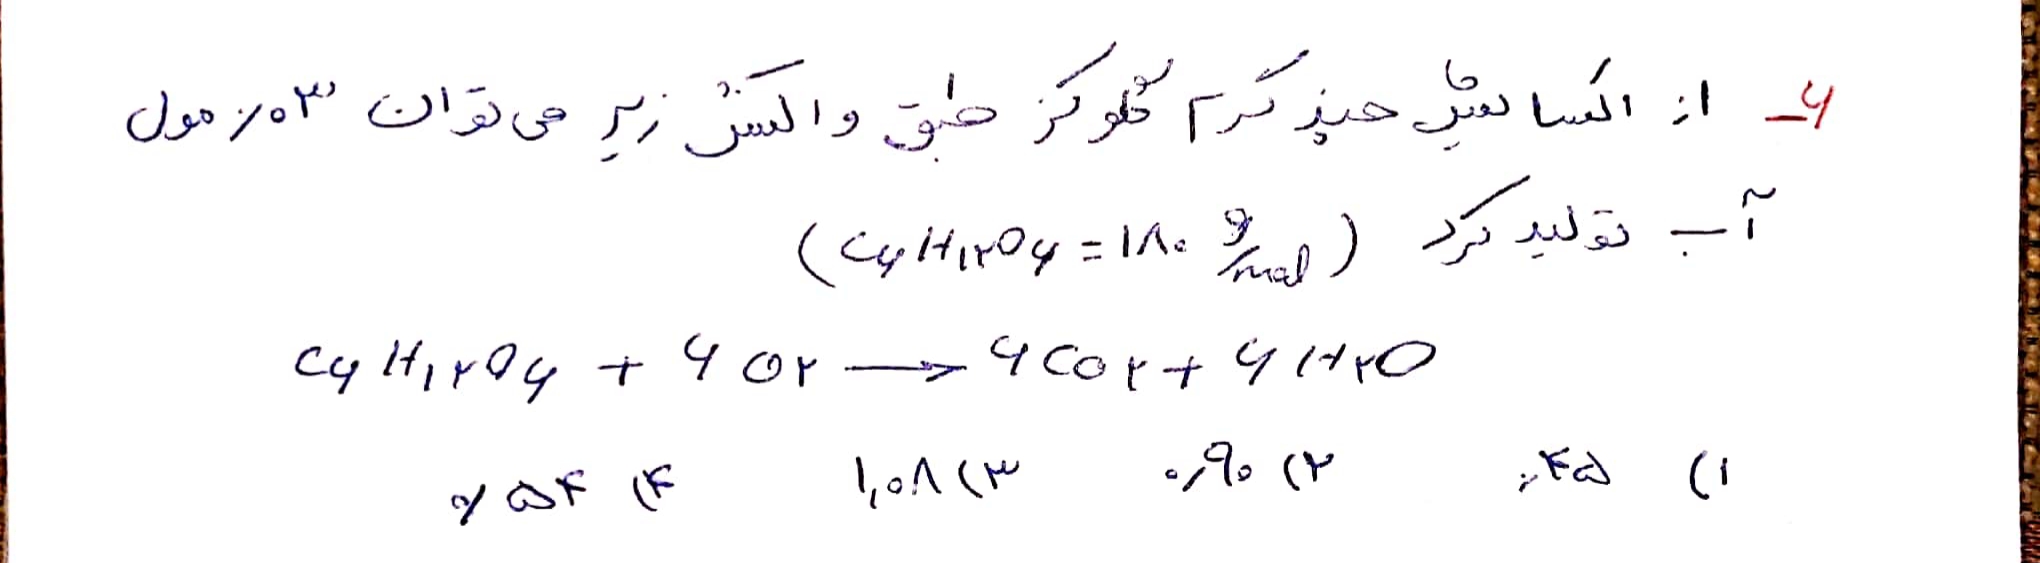 ۶- از اکسایش چند گرم گلوکز طبق واکنش زیر می توان ۰/۰۳ مول
آب تولید کرد (C۶H۱۲O۶ = ۱۸۰ g/mol)
C۶H۱۲O۶ + ۶O۲ → ۶CO۲ + ۶H۲O
۱) ۰/۴۵ ۲) ۰/۹۰ ۳) ۱/۰۸ ۴) ۰/۵۴